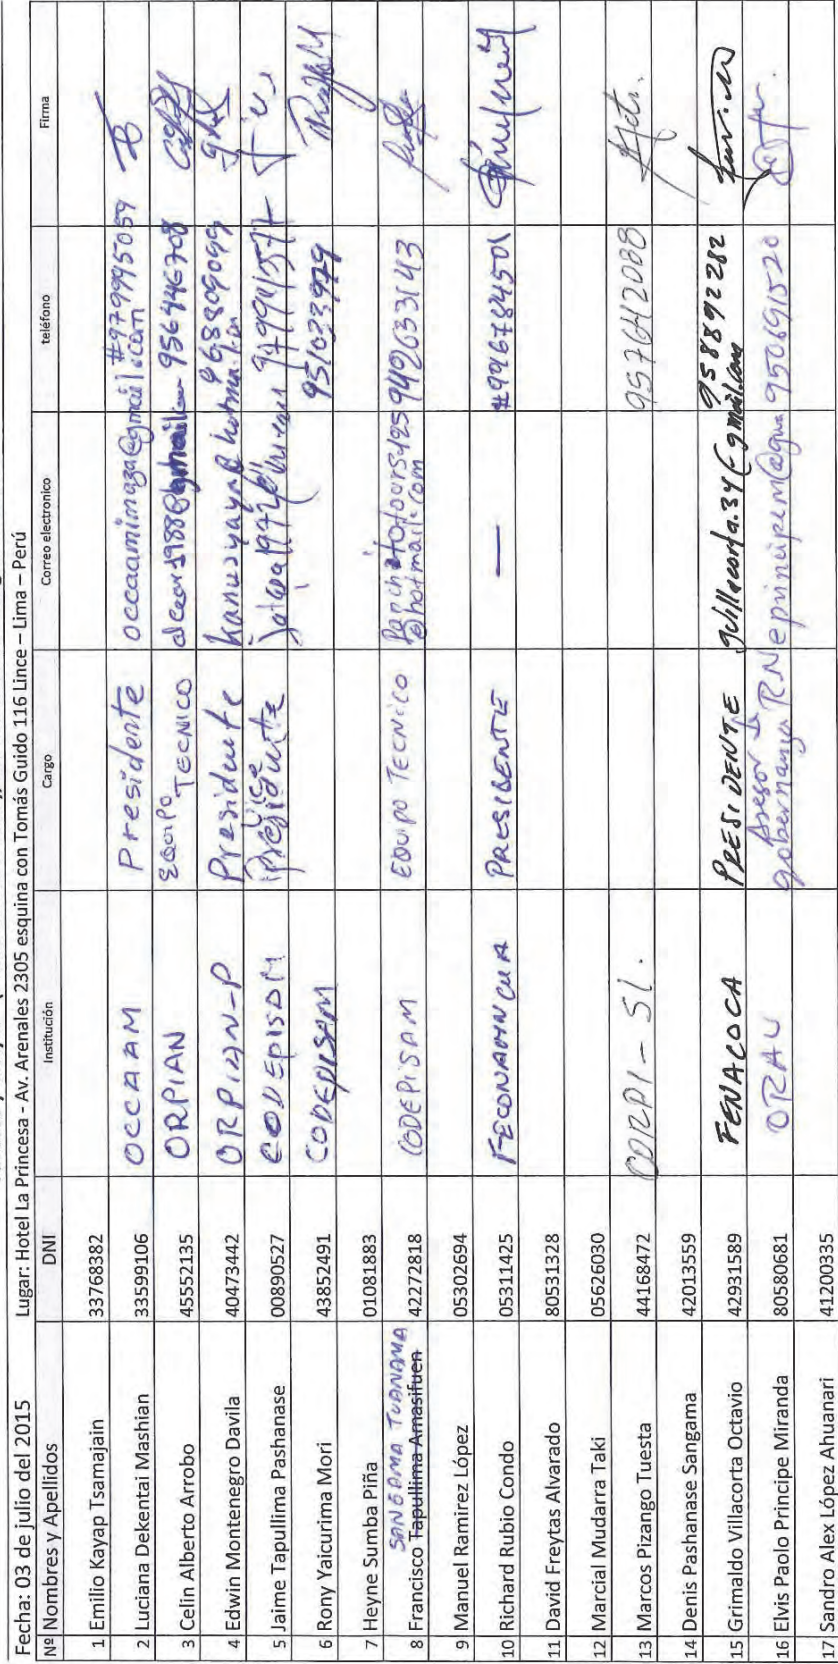 Fecha: 03 de julio del 2015 Lugar: Hotel La Princesa - Av. Arenales 2305 esquina con Tomás Guido 116 Lince – Lima – Perú
Nº Nombres y Apellidos DNI Institución Cargo Correo electronico teléfono Firma
1 Emilio Kayap Tsamajain 33768382
2 Luciana Dekentai Mashian 33599106 OCCAAM Presidente occaamimaza@gmail.com #979995059
3 Celin Alberto Arrobo 45552135 ORPIAN EQUIPO TECNICO 956446708
4 Edwin Montenegro Davila 40473442 ORPIAN-P Presidente 968809099
5 Jaime Tapullima Pashanase 00890527 CODEPISAM Vice presidente
6 Rony Yaicurima Mori 43852491 CODEPISAM 951033979
7 Heyne Sumba Piña 01081883
SANGAMA TUANAMA
8 Francisco Tapullima Amasifuen 42272818 CODEPISAM EQUIPO TECNICO @hotmail.com 942633143
9 Manuel Ramirez López 05302694
10 Richard Rubio Condo 05311425 FECONAMNCUA PRESIDENTE — #996784501
11 David Freytas Alvarado 80531328
12 Marcial Mudarra Taki 05626030
13 Marcos Pizango Tuesta 44168472 CORPI - SL. 957642088
14 Denis Pashanase Sangama 42013559
15 Grimaldo Villacorta Octavio 42931589 FENACOCA PRESIDENTE gvillacorta.34@gmail.com 958892282
16 Elvis Paolo Principe Miranda 80580681 ORAU Asesor de gobernanza RN 950691520
17 Sandro Alex López Ahuanari 41200335